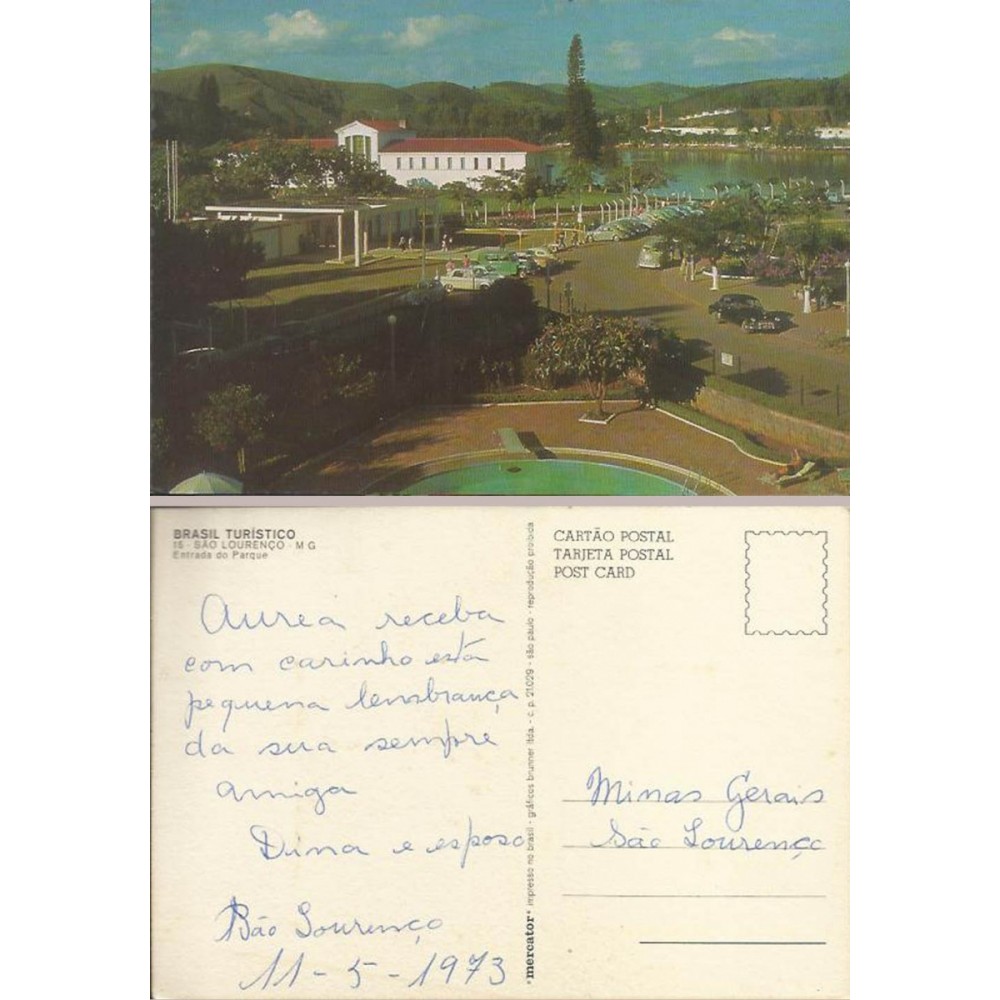 BRASIL TURÍSTICO
15 - SÃO LOURENÇO - MG
Entrada do Parque
Aurea receba
com carinho esta
pequena lembrança
da sua sempre
amiga
Dina e esposo
São Lourenço
11-5-1973
"mercator" impresso no brasil - gráficos brunner ltda. - c. p. 21.029 - são paulo - reprodução proibida
CARTÃO POSTAL
TARJETA POSTAL
POST CARD
Minas Gerais
São Lourenço